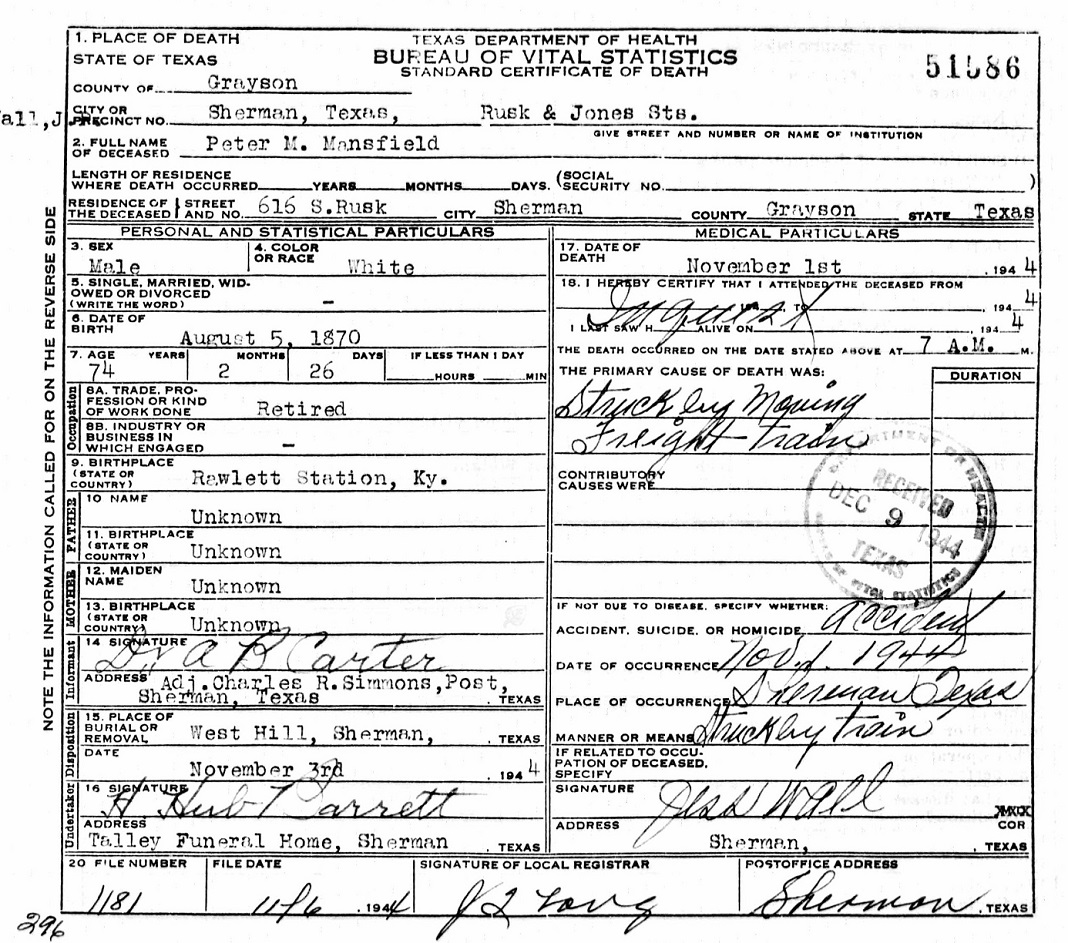 1. PLACE OF DEATH
STATE OF TEXAS
TEXAS DEPARTMENT OF HEALTH
BUREAU OF VITAL STATISTICS
STANDARD CERTIFICATE OF DEATH
51586
COUNTY OF Grayson
CITY OR PRECINCT NO. Sherman, Texas, Rusk & Jones Sts.
GIVE STREET AND NUMBER OR NAME OF INSTITUTION
2. FULL NAME OF DECEASED Peter M. Mansfield
LENGTH OF RESIDENCE WHERE DEATH OCCURRED YEARS MONTHS DAYS. (SOCIAL SECURITY NO. )
RESIDENCE OF THE DECEASED STREET AND NO. 616 S.Rusk CITY Sherman COUNTY Grayson STATE Texas
NOTE THE INFORMATION CALLED FOR ON THE REVERSE SIDE
PERSONAL AND STATISTICAL PARTICULARS
3. SEX Male
4. COLOR OR RACE White
5. SINGLE, MARRIED, WIDOWED OR DIVORCED (WRITE THE WORD) -
6. DATE OF BIRTH August 5, 1870
7. AGE YEARS MONTHS DAYS IF LESS THAN 1 DAY
74 2 26 HOURS MIN
Occupation
8A. TRADE, PROFESSION OR KIND OF WORK DONE Retired
8B. INDUSTRY OR BUSINESS IN WHICH ENGAGED -
9. BIRTHPLACE (STATE OR COUNTRY) Rawlett Station, Ky.
FATHER
10 NAME Unknown
11. BIRTHPLACE (STATE OR COUNTRY) Unknown
MOTHER
12. MAIDEN NAME Unknown
13. BIRTHPLACE (STATE OR COUNTRY) Unknown
Informant
14 SIGNATURE Dr A B Carter
ADDRESS Adj.Charles R.Simmons,Post,
Sherman, Texas . TEXAS
Disposition
15. PLACE OF BURIAL OR REMOVAL West Hill, Sherman, . TEXAS
DATE November 3rd . 194 4
Undertaker
16 SIGNATURE H Hub Barrett
ADDRESS
Talley Funeral Home, Sherman . TEXAS
MEDICAL PARTICULARS
17. DATE OF DEATH November 1st . 194 4
18. I HEREBY CERTIFY THAT I ATTENDED THE DECEASED FROM
Inquest TO 194 4
I LAST SAW H ALIVE ON , 194 4
THE DEATH OCCURRED ON THE DATE STATED ABOVE AT 7 A.M. M.
THE PRIMARY CAUSE OF DEATH WAS: DURATION
Struck by Moving
Freight train
CONTRIBUTORY CAUSES WERE
RECEIVED
DEC 9 1944
TEXAS
IF NOT DUE TO DISEASE, SPECIFY WHETHER:
ACCIDENT, SUICIDE, OR HOMICIDE accident
DATE OF OCCURRENCE Nov. 1. 1944
PLACE OF OCCURRENCE Sherman Texas
MANNER OR MEANS Struck by train
IF RELATED TO OCCUPATION OF DECEASED, SPECIFY
SIGNATURE Jess Wall
COR
ADDRESS Sherman, . TEXAS
20 FILE NUMBER FILE DATE SIGNATURE OF LOCAL REGISTRAR POSTOFFICE ADDRESS
1181 11/6 . 1944 Sherman . TEXAS
296